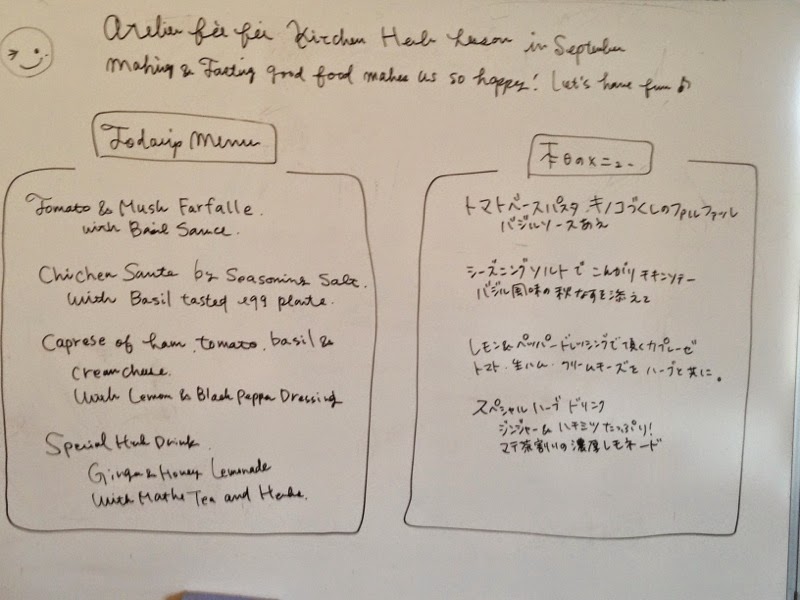 Atelier féi féi Kitchen Herb Lesson in September
Making & Tasting good food makes us so happy! Let's have fun♪
Today's Menu
Tomato & Mush Farfalle.
with Basil Sauce.
Chicken Saute by Seasoning Salt.
with Basil tasted egg plante.
Caprese of ham. tomato. basil &
creamcheese.
with Lemon & Black Pepper Dressing
Special Herb Drink.
Ginger & Honey Lemonade
with Mathe Tea and Herbs.
本日のメニュー
トマトベースパスタ キノコづくしのファルファッレ
バジルソースあえ
シーズニングソルトで こんがりチキンソテー
バジル風味の秋なすを添えて
レモン&ペッパードレッシングで頂くカプレーゼ
トマト・生ハム・クリームチーズを ハーブと共に。
スペシャル ハーブ ドリンク
ジンジャー& ハチミツたっぷり!
マテ茶割りの濃厚レモネード